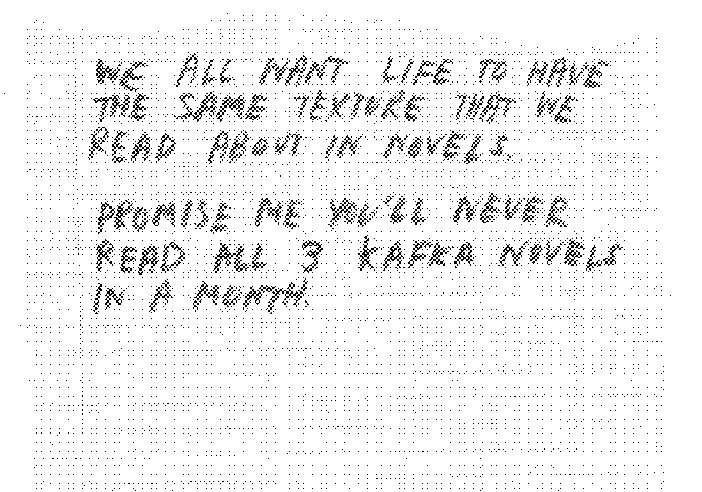 WE ALL WANT LIFE TO HAVE
THE SAME TEXTURE THAT WE
READ ABOUT IN NOVELS.
PROMISE ME YOU'LL NEVER
READ ALL 3 KAFKA NOVELS
IN A MONTH.